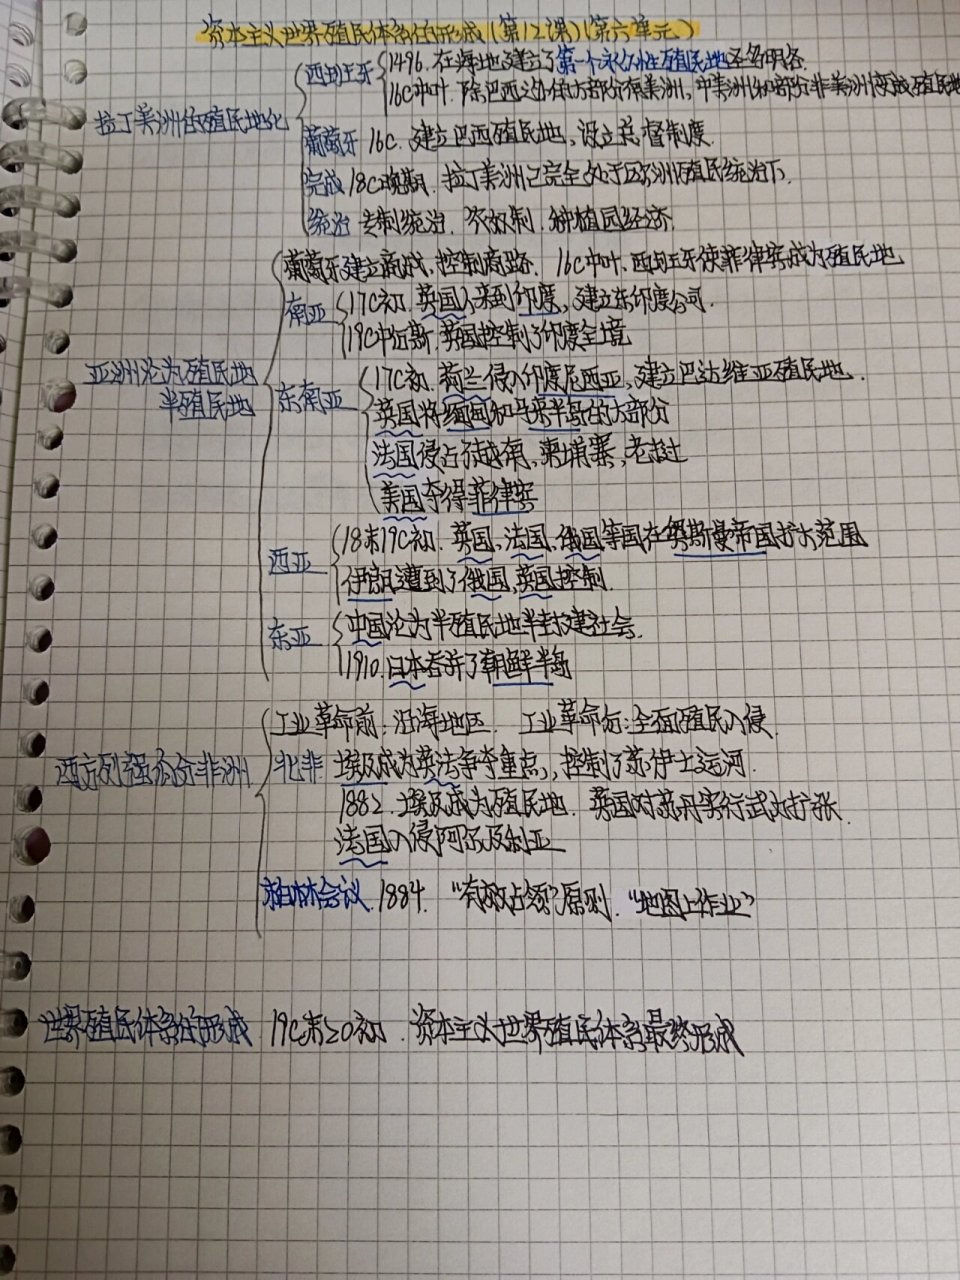 资本主义世界殖民体系的形成(第12课)(第六单元)
拉丁美洲的殖民地化
西班牙 1496.在海地建立了第一个永久性殖民地圣多明各
16C中叶.除巴西之外的大部分南美洲,中美洲和部分北美洲变成殖民地
葡萄牙 16C.建立巴西殖民地,设立总督制度.
完成 18C晚期.拉丁美洲已完全处于欧洲殖民统治下.
统治 专制统治.奴制.种植园经济.
亚洲沦为殖民地
半殖民地
葡萄牙建立商,控制商路. 16C中叶.西班牙使菲律宾成为殖民地
南亚 17C初.英国人来到印度,建立东印度公司.
19C中,英国控制了印度全境
东南亚 17C初.荷兰侵入印度尼西亚,建立巴达维亚殖民地.
英国将缅甸和马来半岛的大部分
法国侵占了越南,柬埔寨,老挝
美国夺得菲律宾
西亚 18末19C初.英国,法国.俄国等国在奥斯曼帝国扩大范围
伊朗遭到了俄国,英国控制.
东亚 中国沦为半殖民地半封建社会.
1910.日本吞并了朝鲜半岛
西方列强瓜分非洲
工业革命前:沿海地区. 工业革命后:全面殖民入侵.
北非 埃及成为英法争夺重点,控制了苏伊士运河.
1882.埃及成为殖民地.英国对苏丹实行武力扩张.
法国入侵阿尔及利亚
柏林会议.1884. “有效占领”原则.“地图上作业”
世界殖民体系的形成 19C末20初.资本主义世界殖民体系最终形成